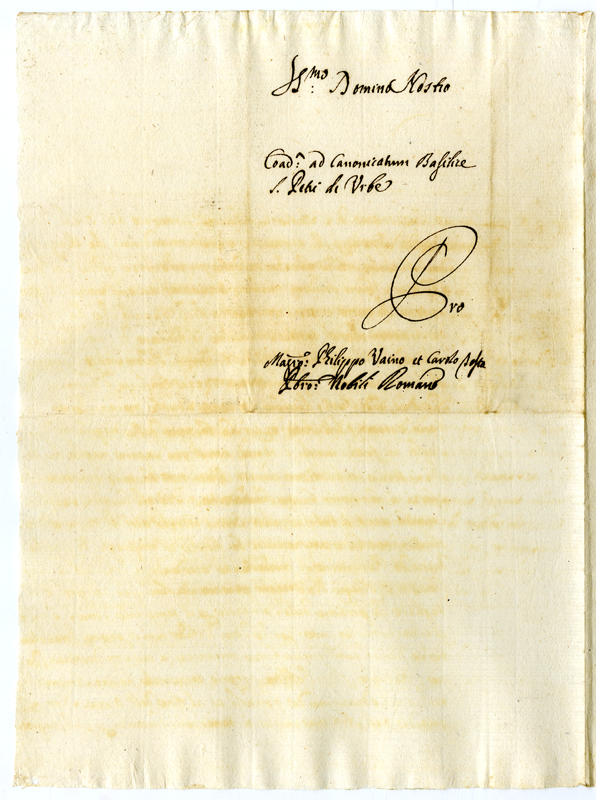 SS.mo Domino Nostro
Coad.: ad Canonicatum Basilicę
S. Petri de Urbe
Pro
Philippo Vaino et Carolo
Pbro: Nobili Romano